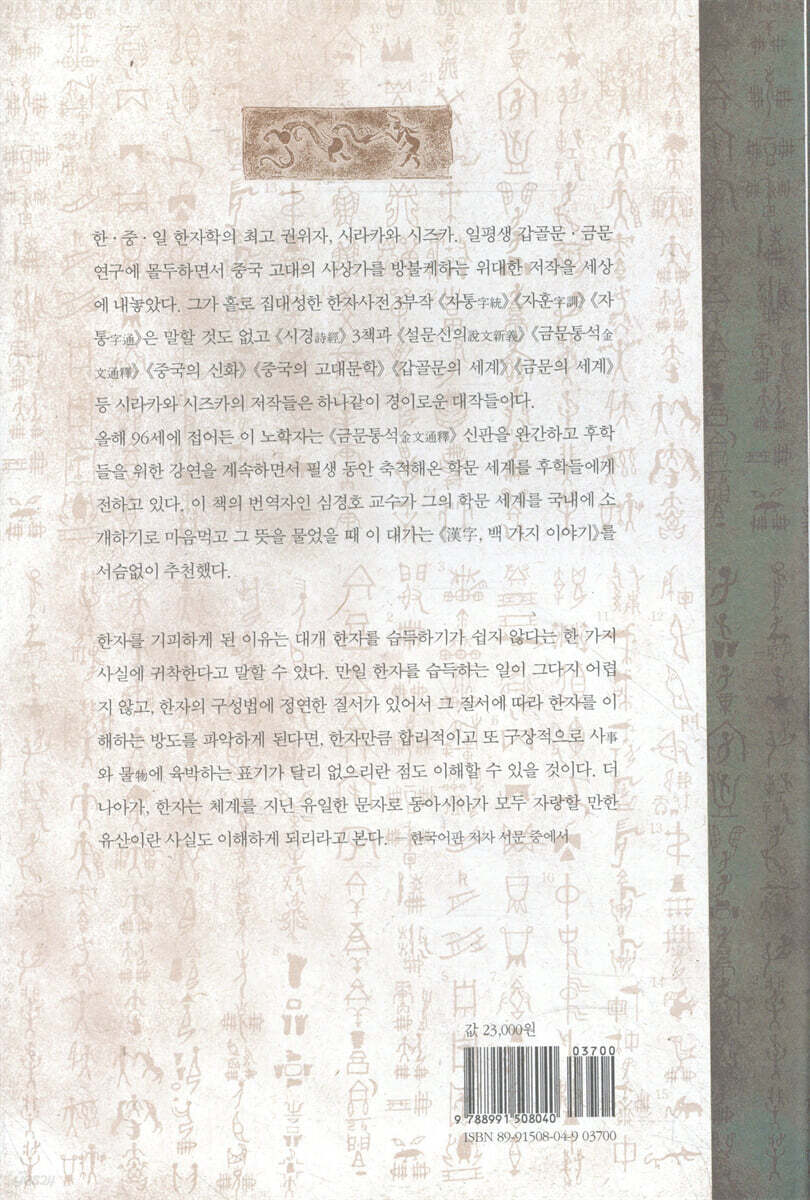 한·중·일 한자학의 최고 권위자, 시라카와 시즈카. 일평생 갑골문·금문
연구에 몰두하면서 중국 고대의 사상가를 방불케하는 위대한 저작을 세상
에 내놓았다. 그가 홀로 집대성한 한자사전 3부작 《자통字統》《자훈字訓》《자
통字通》은 말할 것도 없고 《시경詩經》 3책과 《설문신의說文新義》 《금문통석金
文通釋》《중국의 신화》《중국의 고대문학》《갑골문의 세계》《금문의 세계》
등 시라카와 시즈카의 저작들은 하나같이 경이로운 대작들이다.
올해 96세에 접어든 이 노학자는 《금문통석金文通釋》 신판을 완간하고 후학
들을 위한 강연을 계속하면서 필생 동안 축적해온 학문 세계를 후학들에게
전하고 있다. 이 책의 번역자인 심경호 교수가 그의 학문 세계를 국내에 소
개하기로 마음먹고 그 뜻을 물었을 때 이 대가는 《漢字, 백 가지 이야기》를
서슴없이 추천했다.
한자를 기피하게 된 이유는 대개 한자를 습득하기가 쉽지 않다는 한 가지
사실에 귀착한다고 말할 수 있다. 만일 한자를 습득하는 일이 그다지 어렵
지 않고, 한자의 구성법에 정연한 질서가 있어서 그 질서에 따라 한자를 이
해하는 방도를 파악하게 된다면, 한자만큼 합리적이고 또 구상적으로 사事
와 물物에 육박하는 표기가 달리 없으리란 점도 이해할 수 있을 것이다. 더
나아가, 한자는 체계를 지닌 유일한 문자로 동아시아가 모두 자랑할 만한
유산이란 사실도 이해하게 되리라고 본다. —한국어판 저자 서문 중에서
값 23,000원
03700
9 788991 508040
ISBN 89-91508-04-9 03700